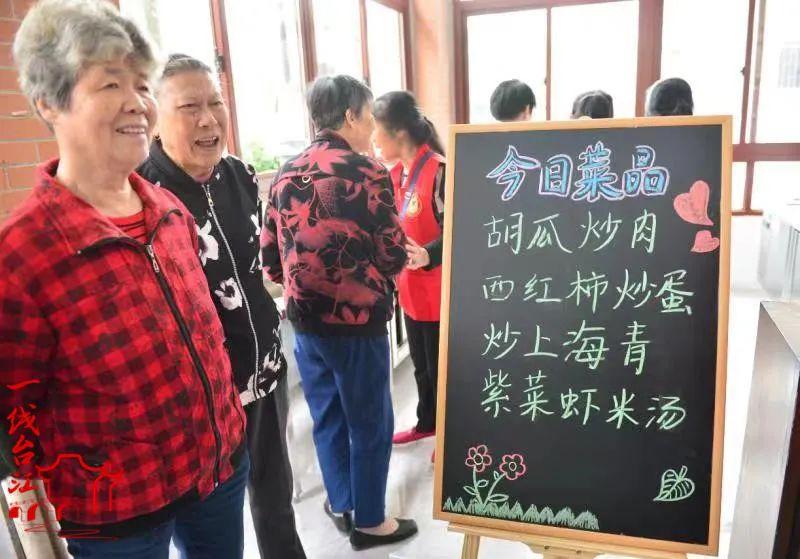 今日菜晶
胡瓜炒肉
西红柿炒蛋
炒上海青
紫菜虾米汤
一线台江